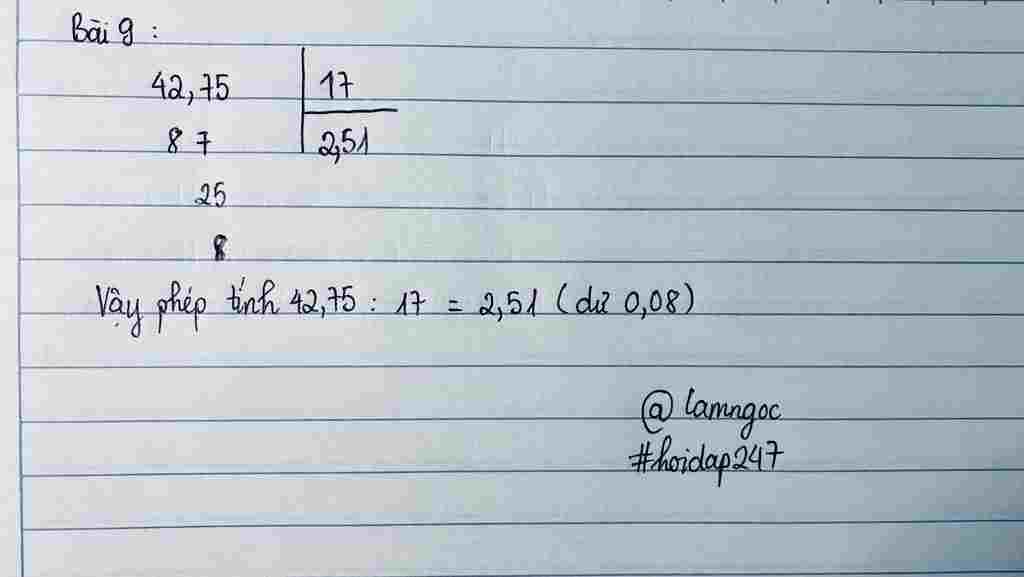 Bài 9 :
42,75 17
8 7 2,51
25
8
Vậy phép tính 42,75 : 17 = 2,51 (dư 0,08)
@lamngoc
#hoidap247